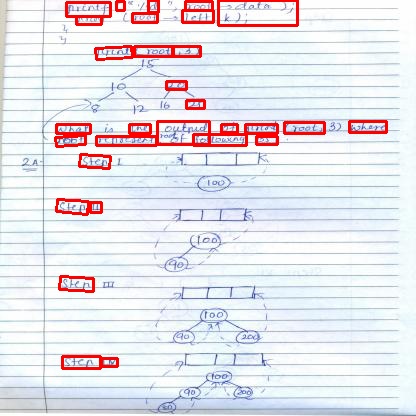 printf ("%d", root → data);
(root → left, k);
}
}
print (root, 3)
15
10 20
8 12 16 25
What is the output of print (root, 3) where
root represent root of following
2A. Step I
100
Step II
100
90
Step III
100
90 200
Step IV
100
90 200
80